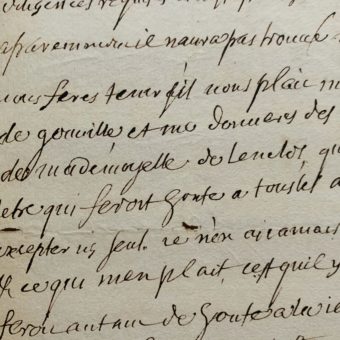 diligences
apparemment il naura pas trouué
nous feres tenir sil uous plait
de gouuille et me donneres des
de mademoyselle de Lenclos, qu
letre qui feroit honte a tous les a
excepter un seul. ie nen ai iamais
et ce qui men plait, cest quil y
feroit autant de honte a la uie